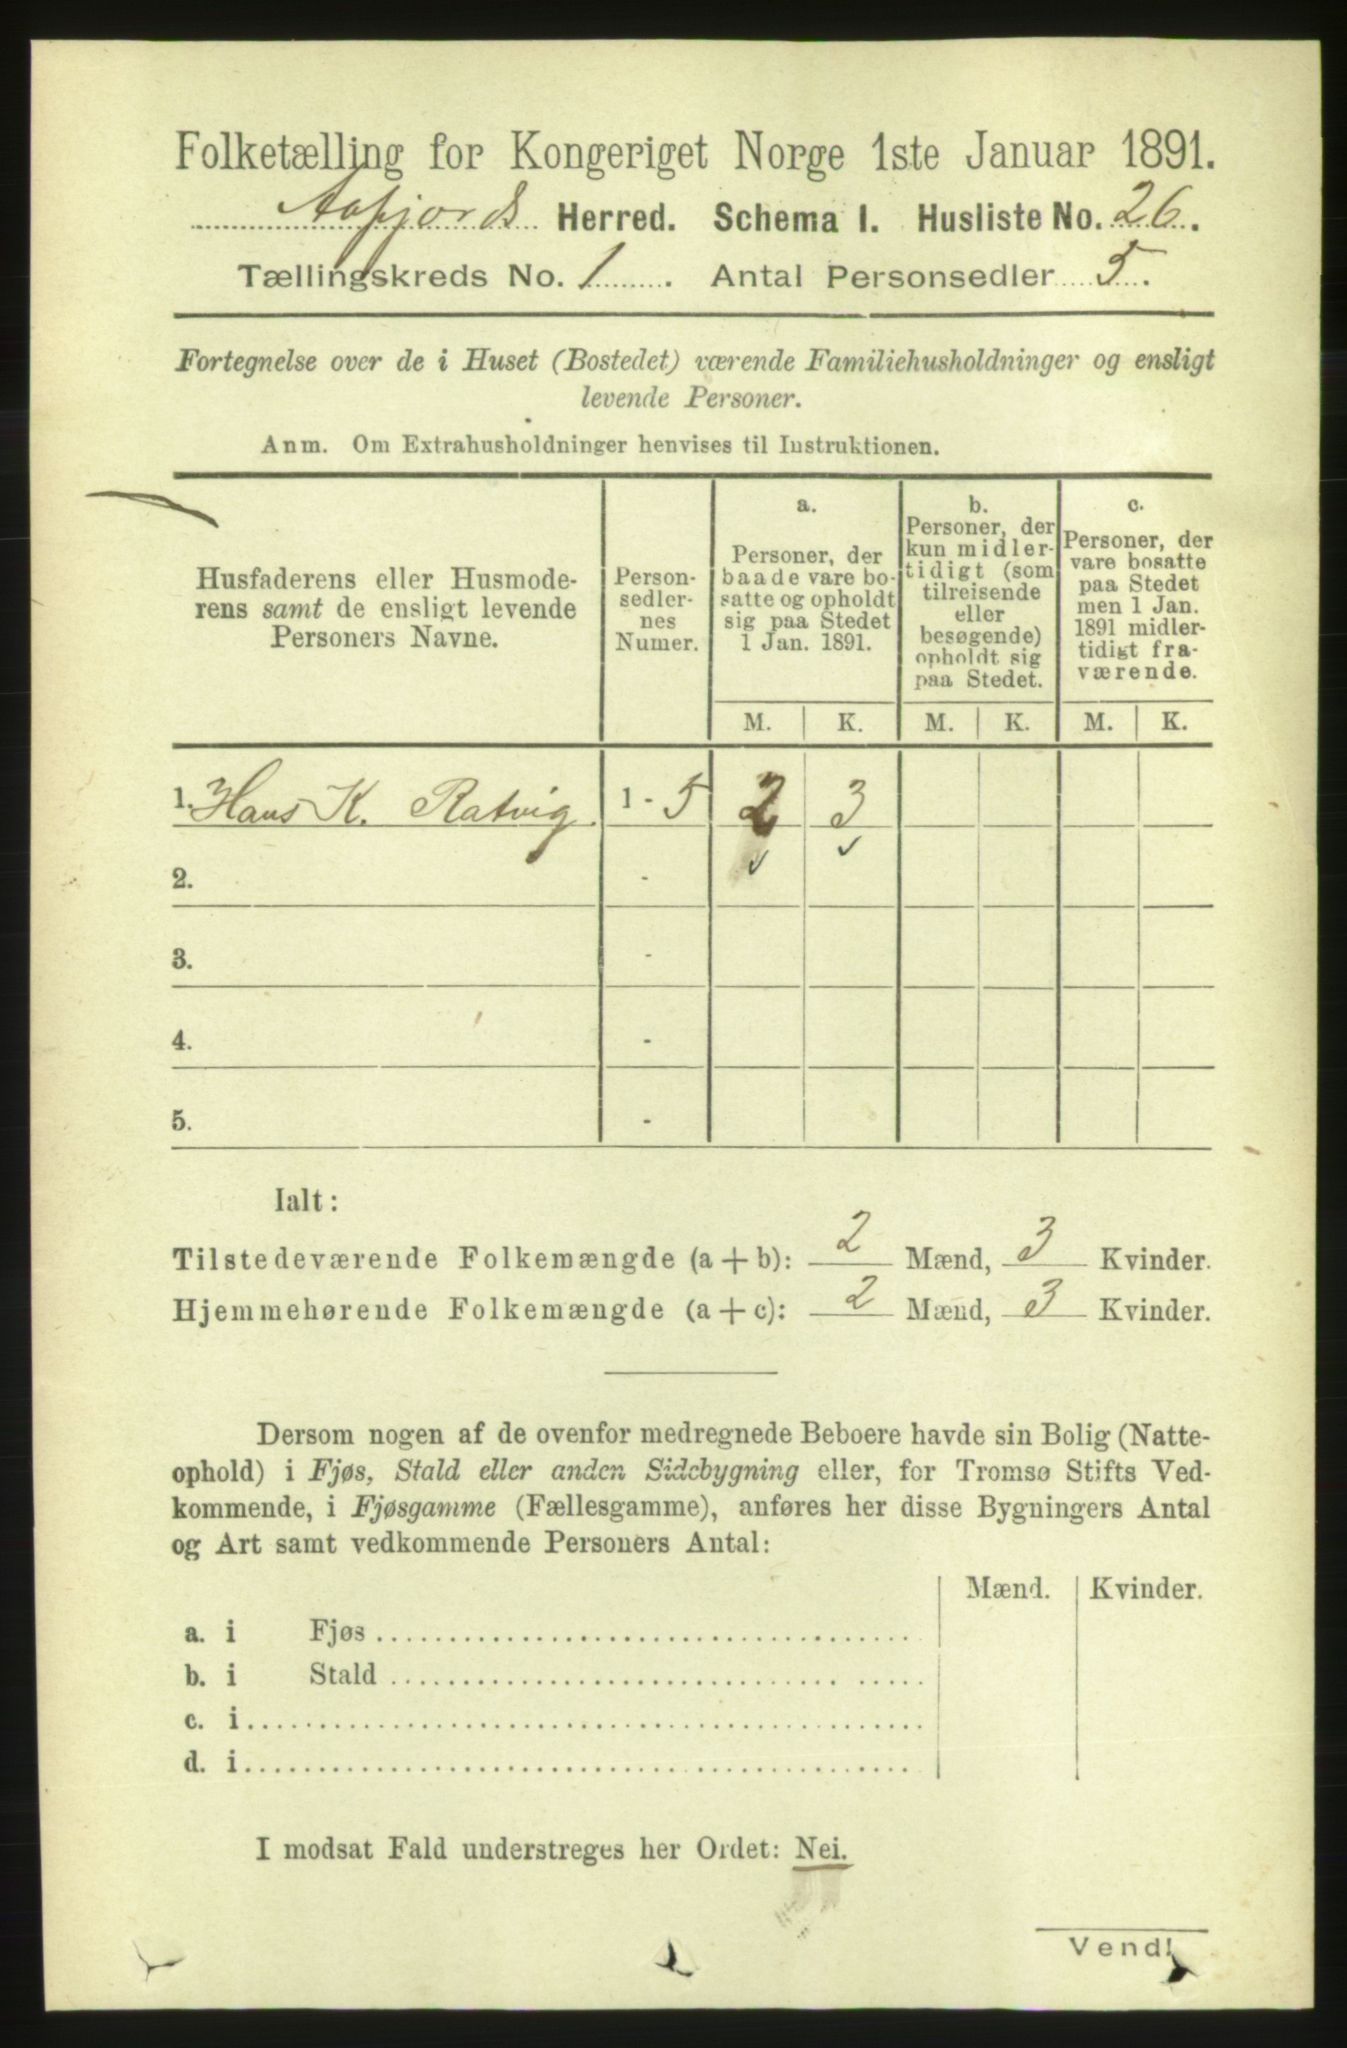 Folketælling for Kongeriget Norge 1ste Januar 1891.
Aafjords Herred. Schema I. Husliste No. 26.
Tællingskreds No. 1. Antal Personsedler 5.
Fortegnelse over de i Huset (Bostedet) værende Familiehusholdninger og ensligt
levende Personer.
Anm. Om Extrahusholdninger henvises til Instruktionen.
Husfaderens eller Husmode-
rens samt de ensligt levende
Personers Navne.
Person-
sedler-
nes
Numer.
a.
Personer, der
baade vare bo-
satte og opholdt
sig paa Stedet
1 Jan. 1891.
b.
Personer, der
kun midler-
tidigt (som
tilreisende
eller
besøgende)
opholdt sig
paa Stedet.
c.
Personer, der
vare bosatte
paa Stedet
men 1 Jan.
1891 midler-
tidigt fra-
værende.
M. K. M. K. M. K.
1. Hans K. Ratvig 1 - 5 2 3
2. -
3. -
4. -
5. -
Ialt:
Tilstedeværende Folkemængde (a + b): 2 Mænd, 3 Kvinder.
Hjemmehørende Folkemængde (a + c): 2 Mænd, 3 Kvinder.
Dersom nogen af de ovenfor medregnede Beboere havde sin Bolig (Natte-
ophold) i Fjøs, Stald eller anden Sidebygning eller, for Tromsø Stifts Ved-
kommende, i Fjøsgamme (Fællesgamme), anføres her disse Bygningers Antal
og Art samt vedkommende Personers Antal:
Mænd. Kvinder.
a. i Fjøs
b. i Stald
c. i
d. i
I modsat Fald understreges her Ordet: Nei.
Vend!